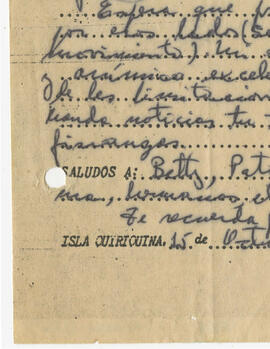 Espera que
por esos lados (Se
movimiento). Mi
y anímico excele
de las limitacion
manda noticias tu
SALUDOS A: Betty, Pat
ma, hermanos
Te recuerda
ISLA QUIRIQUINA, 15 de Octu